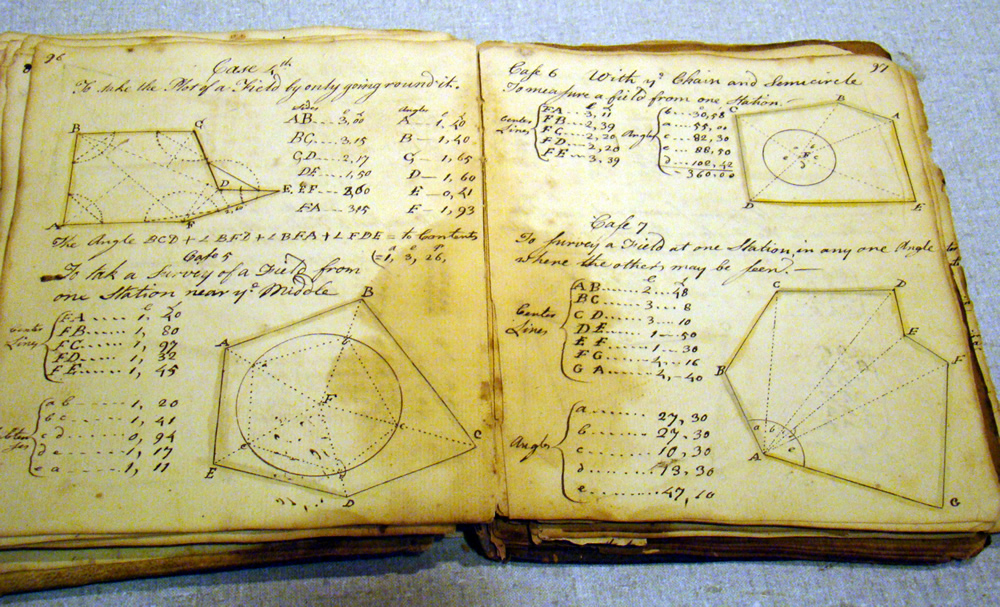 96
Case 4th
To take the Plot of a Field by only going round it.
Sides Angles
AB 3,00 A 1,20
BC 3,15 B 1,40
CD 2,17 C 1,65
DE 1,50 D 1,60
EF 2,00 E 0,41
FA 315 F 1,93
B C D E F A
The Angle BCD + ∠ BFD + ∠ BFA + ∠ FDE = to Contents
= 1, 3, 26,
Case 5
To tak a Survey of a Field from
one Station near ye Middle
Center Lines
FA 1, 20
FB 1, 80
FC 1, 97
FD 1, 32
FE 1, 45
ab 1, 20
bc 1, 41
cd 0, 94
de 1, 17
ea 1, 11
A B C D E F
97
Case 6 With ye Chain and Semicircle
To measure a field from one Station.
Center Lines
FA 3, 11
FB 2, 39
FC 2, 20
FD 2, 20
FE 3, 39
Angles
b 30,58
a 55,00
c 82,30
e 88,50
d 102,42
360:00
C B A E D F
Case 7
To Survey a Field at one Station, in any one Angle
where the others may be seen.
Center Lines
AB 2 48
BC 3 8
CD 3 10
DE 1 50
EF 1 30
FG 4 16
GA 4 40
Angles
a 27, 30
b 27, 30
c 10, 30
d 13, 30
e 47, 10
C D E F B A G